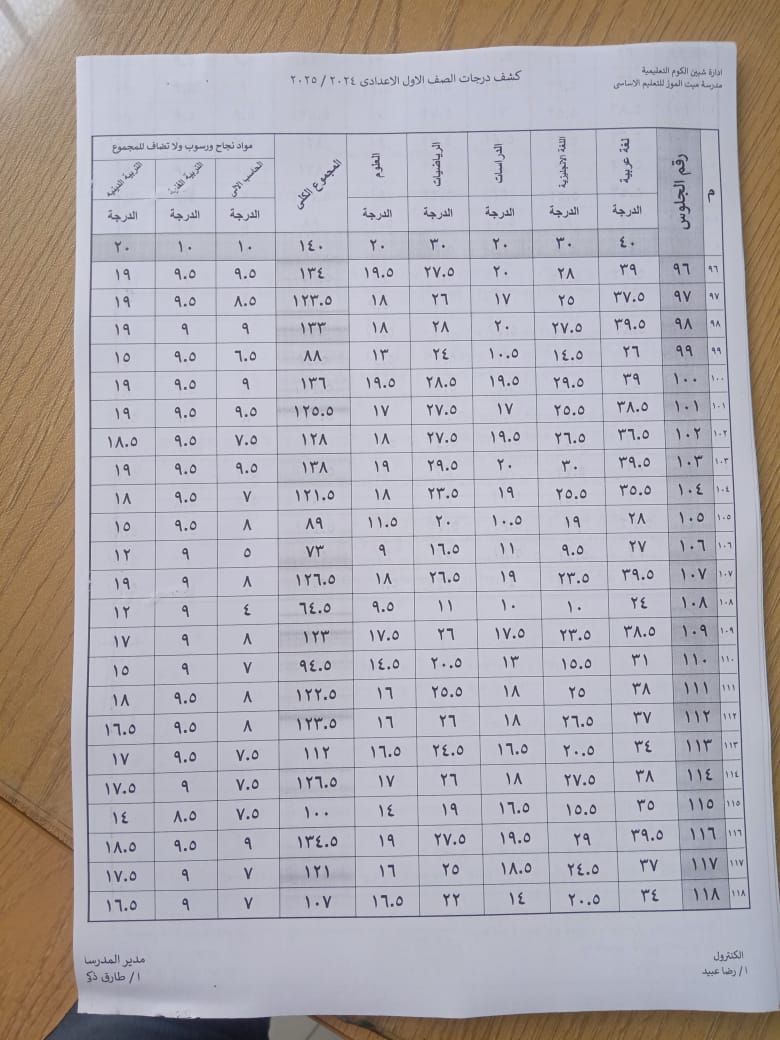 ادارة شبين الكوم التعليمية
مدرسة ميت الموز للتعليم الاساسى
كشف درجات الصف الاول الاعدادى ٢٠٢٤ / ٢٠٢٥
م رقم الجلوس لغة عربية اللغة الانجليزية الدراسات الرياضيات العلوم المجموع الكلى مواد نجاح ورسوب ولا تضاف للمجموع
الحاسب الآلى التربية الفنية التربية الدينية
الدرجة الدرجة الدرجة الدرجة الدرجة الدرجة الدرجة الدرجة
٤٠ ٣٠ ٢٠ ٣٠ ٢٠ ١٤٠ ١٠ ١٠ ٢٠
٩٦ ٩٦ ٣٩ ٢٨ ٢٠ ٢٧.٥ ١٩.٥ ١٣٤ ٩.٥ ٩.٥ ١٩
٩٧ ٩٧ ٣٧.٥ ٢٥ ١٧ ٢٦ ١٨ ١٢٣.٥ ٨.٥ ٩.٥ ١٩
٩٨ ٩٨ ٣٩.٥ ٢٧.٥ ٢٠ ٢٨ ١٨ ١٣٣ ٩ ٩ ١٩
٩٩ ٩٩ ٢٦ ١٤.٥ ١٠.٥ ٢٤ ١٣ ٨٨ ٦.٥ ٩.٥ ١٥
١٠٠ ١٠٠ ٣٩ ٢٩.٥ ١٩.٥ ٢٨.٥ ١٩.٥ ١٣٦ ٩ ٩.٥ ١٩
١٠١ ١٠١ ٣٨.٥ ٢٥.٥ ١٧ ٢٧.٥ ١٧ ١٢٥.٥ ٩.٥ ٩.٥ ١٩
١٠٢ ١٠٢ ٣٦.٥ ٢٦.٥ ١٩.٥ ٢٧.٥ ١٨ ١٢٨ ٧.٥ ٩.٥ ١٨.٥
١٠٣ ١٠٣ ٣٩.٥ ٣٠ ٢٠ ٢٩.٥ ١٩ ١٣٨ ٩.٥ ٩.٥ ١٩
١٠٤ ١٠٤ ٣٥.٥ ٢٥.٥ ١٩ ٢٣.٥ ١٨ ١٢١.٥ ٧ ٩.٥ ١٨
١٠٥ ١٠٥ ٢٨ ١٩ ١٠.٥ ٢٠ ١١.٥ ٨٩ ٨ ٩.٥ ١٥
١٠٦ ١٠٦ ٢٧ ٩.٥ ١١ ١٦.٥ ٩ ٧٣ ٥ ٩ ١٢
١٠٧ ١٠٧ ٣٩.٥ ٢٣.٥ ١٩ ٢٦.٥ ١٨ ١٢٦.٥ ٨ ٩ ١٩
١٠٨ ١٠٨ ٢٤ ١٠ ١٠ ١١ ٩.٥ ٦٤.٥ ٤ ٩ ١٢
١٠٩ ١٠٩ ٣٨.٥ ٢٣.٥ ١٧.٥ ٢٦ ١٧.٥ ١٢٣ ٨ ٩ ١٧
١١٠ ١١٠ ٣١ ١٥.٥ ١٣ ٢٠.٥ ١٤.٥ ٩٤.٥ ٧ ٩ ١٥
١١١ ١١١ ٣٨ ٢٥ ١٨ ٢٥.٥ ١٦ ١٢٢.٥ ٨ ٩.٥ ١٨
١١٢ ١١٢ ٣٧ ٢٦.٥ ١٨ ٢٦ ١٦ ١٢٣.٥ ٨ ٩.٥ ١٦.٥
١١٣ ١١٣ ٣٤ ٢٠.٥ ١٦.٥ ٢٤.٥ ١٦.٥ ١١٢ ٧.٥ ٩.٥ ١٧
١١٤ ١١٤ ٣٨ ٢٧.٥ ١٨ ٢٦ ١٧ ١٢٦.٥ ٧.٥ ٩ ١٧.٥
١١٥ ١١٥ ٣٥ ١٥.٥ ١٦.٥ ١٩ ١٤ ١٠٠ ٧.٥ ٨.٥ ١٤
١١٦ ١١٦ ٣٩.٥ ٢٩ ١٩.٥ ٢٧.٥ ١٩ ١٣٤.٥ ٩ ٩.٥ ١٨.٥
١١٧ ١١٧ ٣٧ ٢٤.٥ ١٨.٥ ٢٥ ١٦ ١٢١ ٧ ٩ ١٧.٥
١١٨ ١١٨ ٣٤ ٢٠.٥ ١٤ ٢٢ ١٦.٥ ١٠٧ ٧ ٩ ١٦.٥
الكنترول
ا/ رضا عبيد
مدير المدرسا
ا/ طارق ذك